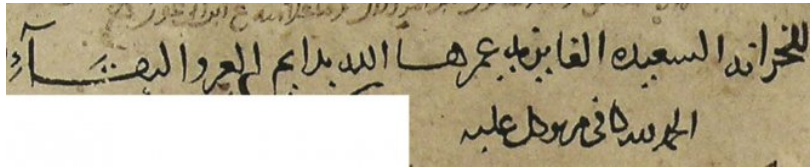 للخزانه السعيده الفايزيه عمرها الله بدايم العز والبقآء
الحمد لله كافى من توكل عليه